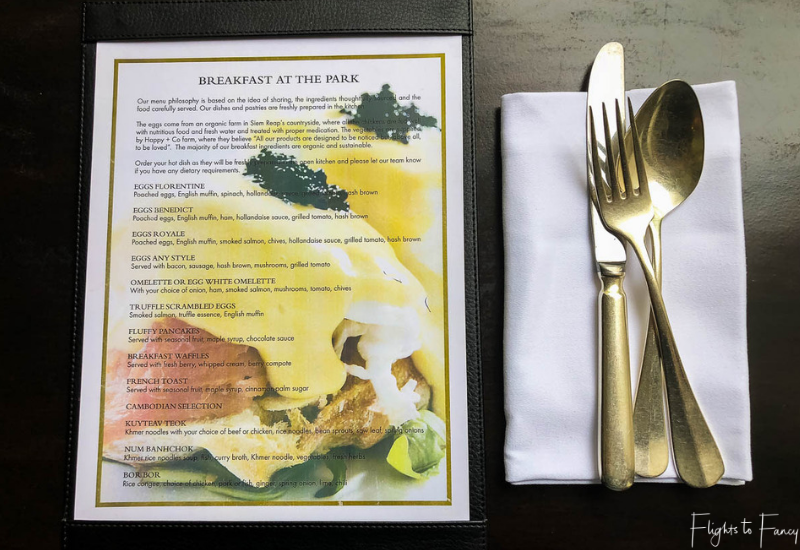 BREAKFAST AT THE PARK
Our menu philosophy is based on the idea of sharing, the ingredients and the
food carefully served. Our dishes and pastries are freshly prepared in the kitchen.
The eggs come from an organic farm in Siem Reap's countryside, where
with nutritional food and fresh water and treated with proper medication. The
by Happy + Co farm, where they believe "All our products are designed to be noticed all,
to be loved". The majority of our breakfast ingredients are organic and sustainable.
Order your hot dish as they will be open kitchen and please let our team know
if you have any dietary requirements.
EGGS FLORENTINE
Poached eggs, English muffin, spinach, hash brown
EGGS BENEDICT
Poached eggs, English muffin, ham, hollandaise sauce, grilled tomato, hash brown
EGGS ROYALE
Poached eggs, English muffin, smoked salmon, chives, hollandaise sauce, grilled tomato, hash brown
EGGS ANY STYLE
Served with bacon, sausage, hash brown, mushrooms, grilled tomato
OMELETTE OR EGG WHITE OMELETTE
With your choice of onion, ham, smoked salmon, mushrooms, tomato, chives
TRUFFLE SCRAMBLED EGGS
Smoked salmon, truffle essence, English muffin
FLUFFY PANCAKES
Served with seasonal fruit, maple syrup, chocolate sauce
BREAKFAST WAFFLES
Served with fresh berry, whipped cream, berry compote
FRENCH TOAST
Served with seasonal fruit, maple syrup, cinnamon palm sugar
CAMBODIAN SELECTION
KUYTEAV TEOK
Khmer noodles with your choice of beef or chicken, rice noodles, bean sprouts, saw leaf, spring onions
NUM BANHCHOK
Khmer rice noodles soup, fish curry broth, Khmer noodle, vegetables, fresh herbs
BOR BOR
Rice congee, choice of chicken, pork or fish, ginger, spring onion, lime, chili
Flights to Fancy